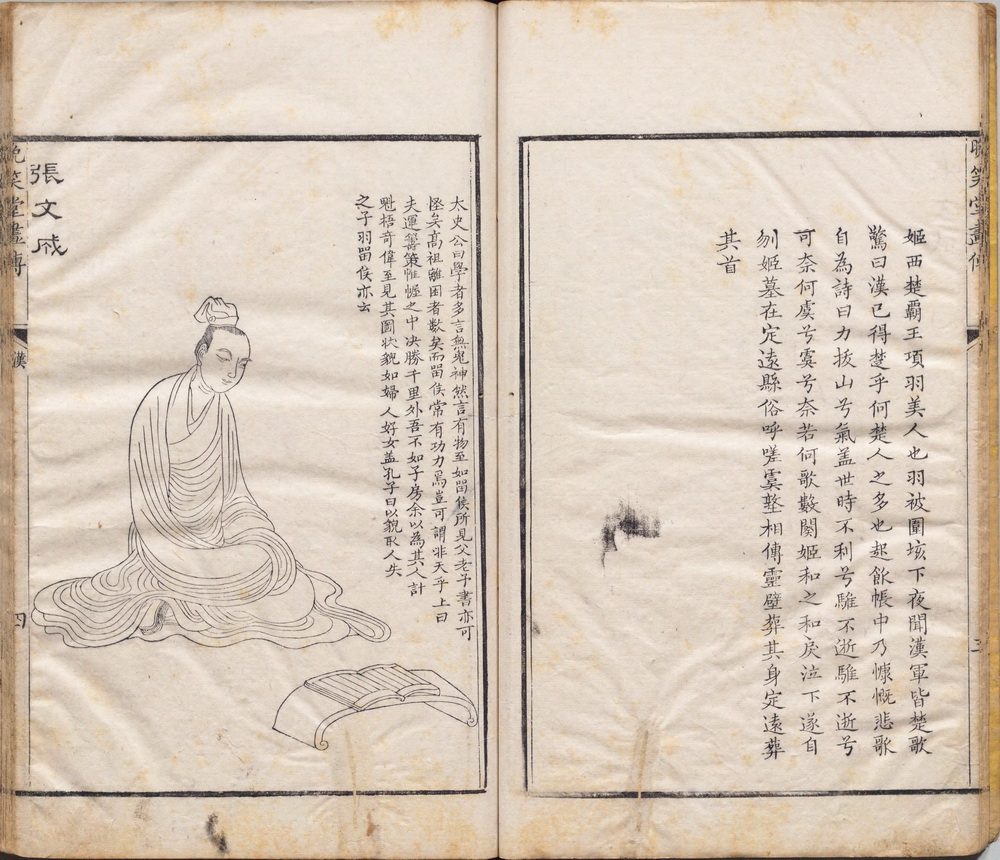 晚笑堂畫傳
姬西楚霸王項羽美人也羽被圍垓下夜聞漢軍皆楚歌
驚曰漢已得楚乎何楚人之多也起飲帳中乃慷慨悲歌
自為詩曰力拔山兮氣蓋世時不利兮騅不逝騅不逝兮
可奈何虞兮虞兮奈若何歌數闋姬和之和戾泣下遂自
刎姬墓在定遠縣俗呼嗟虞墪相傳靈壁葬其身定遠葬
其首
三
太史公曰學者多言無鬼神然言有物至如留侯所見父老子書亦可
怪矣高祖離困者數矣而留侯常有功力焉豈可謂非天乎上曰
夫運籌策帷幄之中決勝千里外吾不如子房余以為其人計
魁梧奇偉至見其圖狀貌如婦人好女蓋孔子曰以貌取人失
之子羽留侯亦云
張文成
晚笑堂畫傳
漢
四